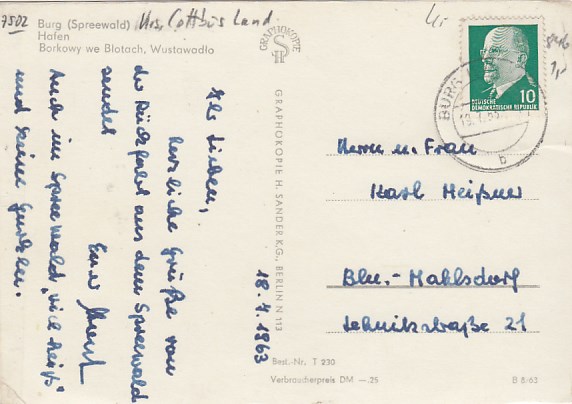 7502
Burg (Spreewald) Krs. Cottbus Land
Hafen
Borkowy we Blotach, Wustawadło
GRAPHOKOPIE
GRAPHOKOPIE H. SANDER K.G., BERLIN N 113
DEUTSCHE
DEMOKRATISCHE REPUBLIK
10
BURG
b
18.7.1963
Ihr Lieben,
herzliche Grüße von
der Rückfahrt aus dem Spreewald
sendet
Euer
Auch im Spreewald „viel heiß"
und keine Gurken.
Herrn u. Frau
Karl Meißner
Bln.-Mahlsdorf
Lehnitzstraße 21
Best.-Nr. T 230
Verbraucherpreis DM —.25
B 8/63